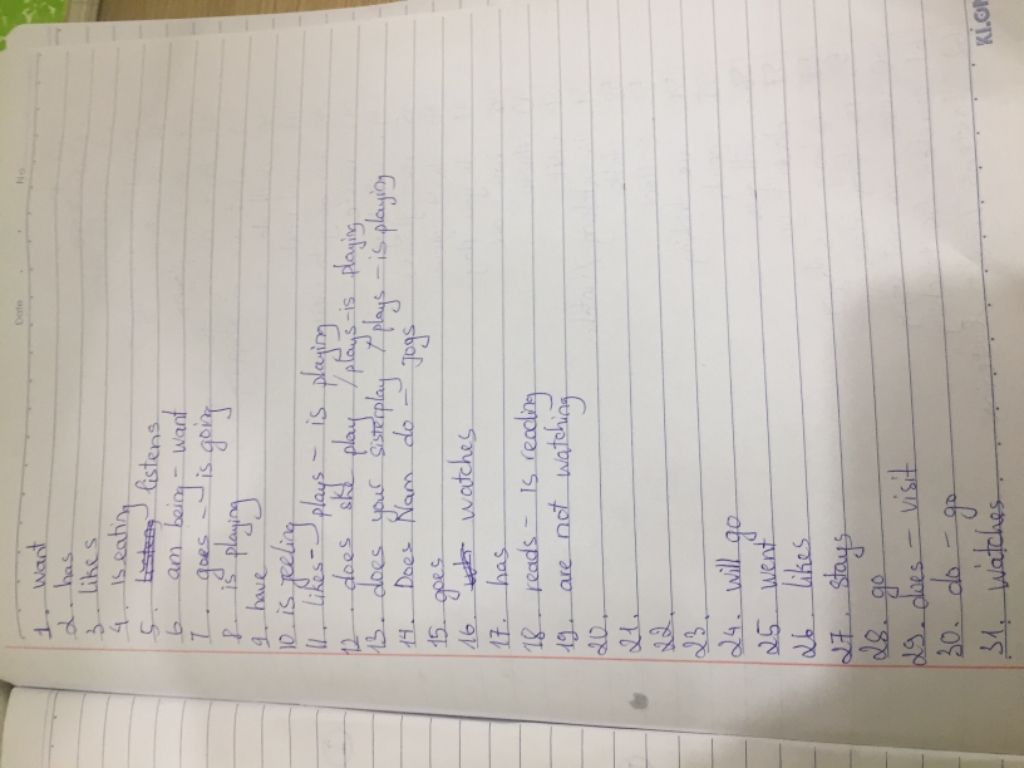 No.
Date
KLONG
1. want
2. has
3. likes
4. is eating
5. listens
6. am being - want
7. goes - is going
8. is playing
9. have
10. is feeling
11. likes - plays - is playing
12. does she play / plays - is playing
13. does your sister play / plays - is playing
14. Does Nam do - jogs
15. goes
16. watches
17. has
18. reads - is reading
19. are not watching
20.
21.
22.
23.
24. will go
25. went
26. likes
27. stays
28. go
29. does - visit
30. do - go
31. watches